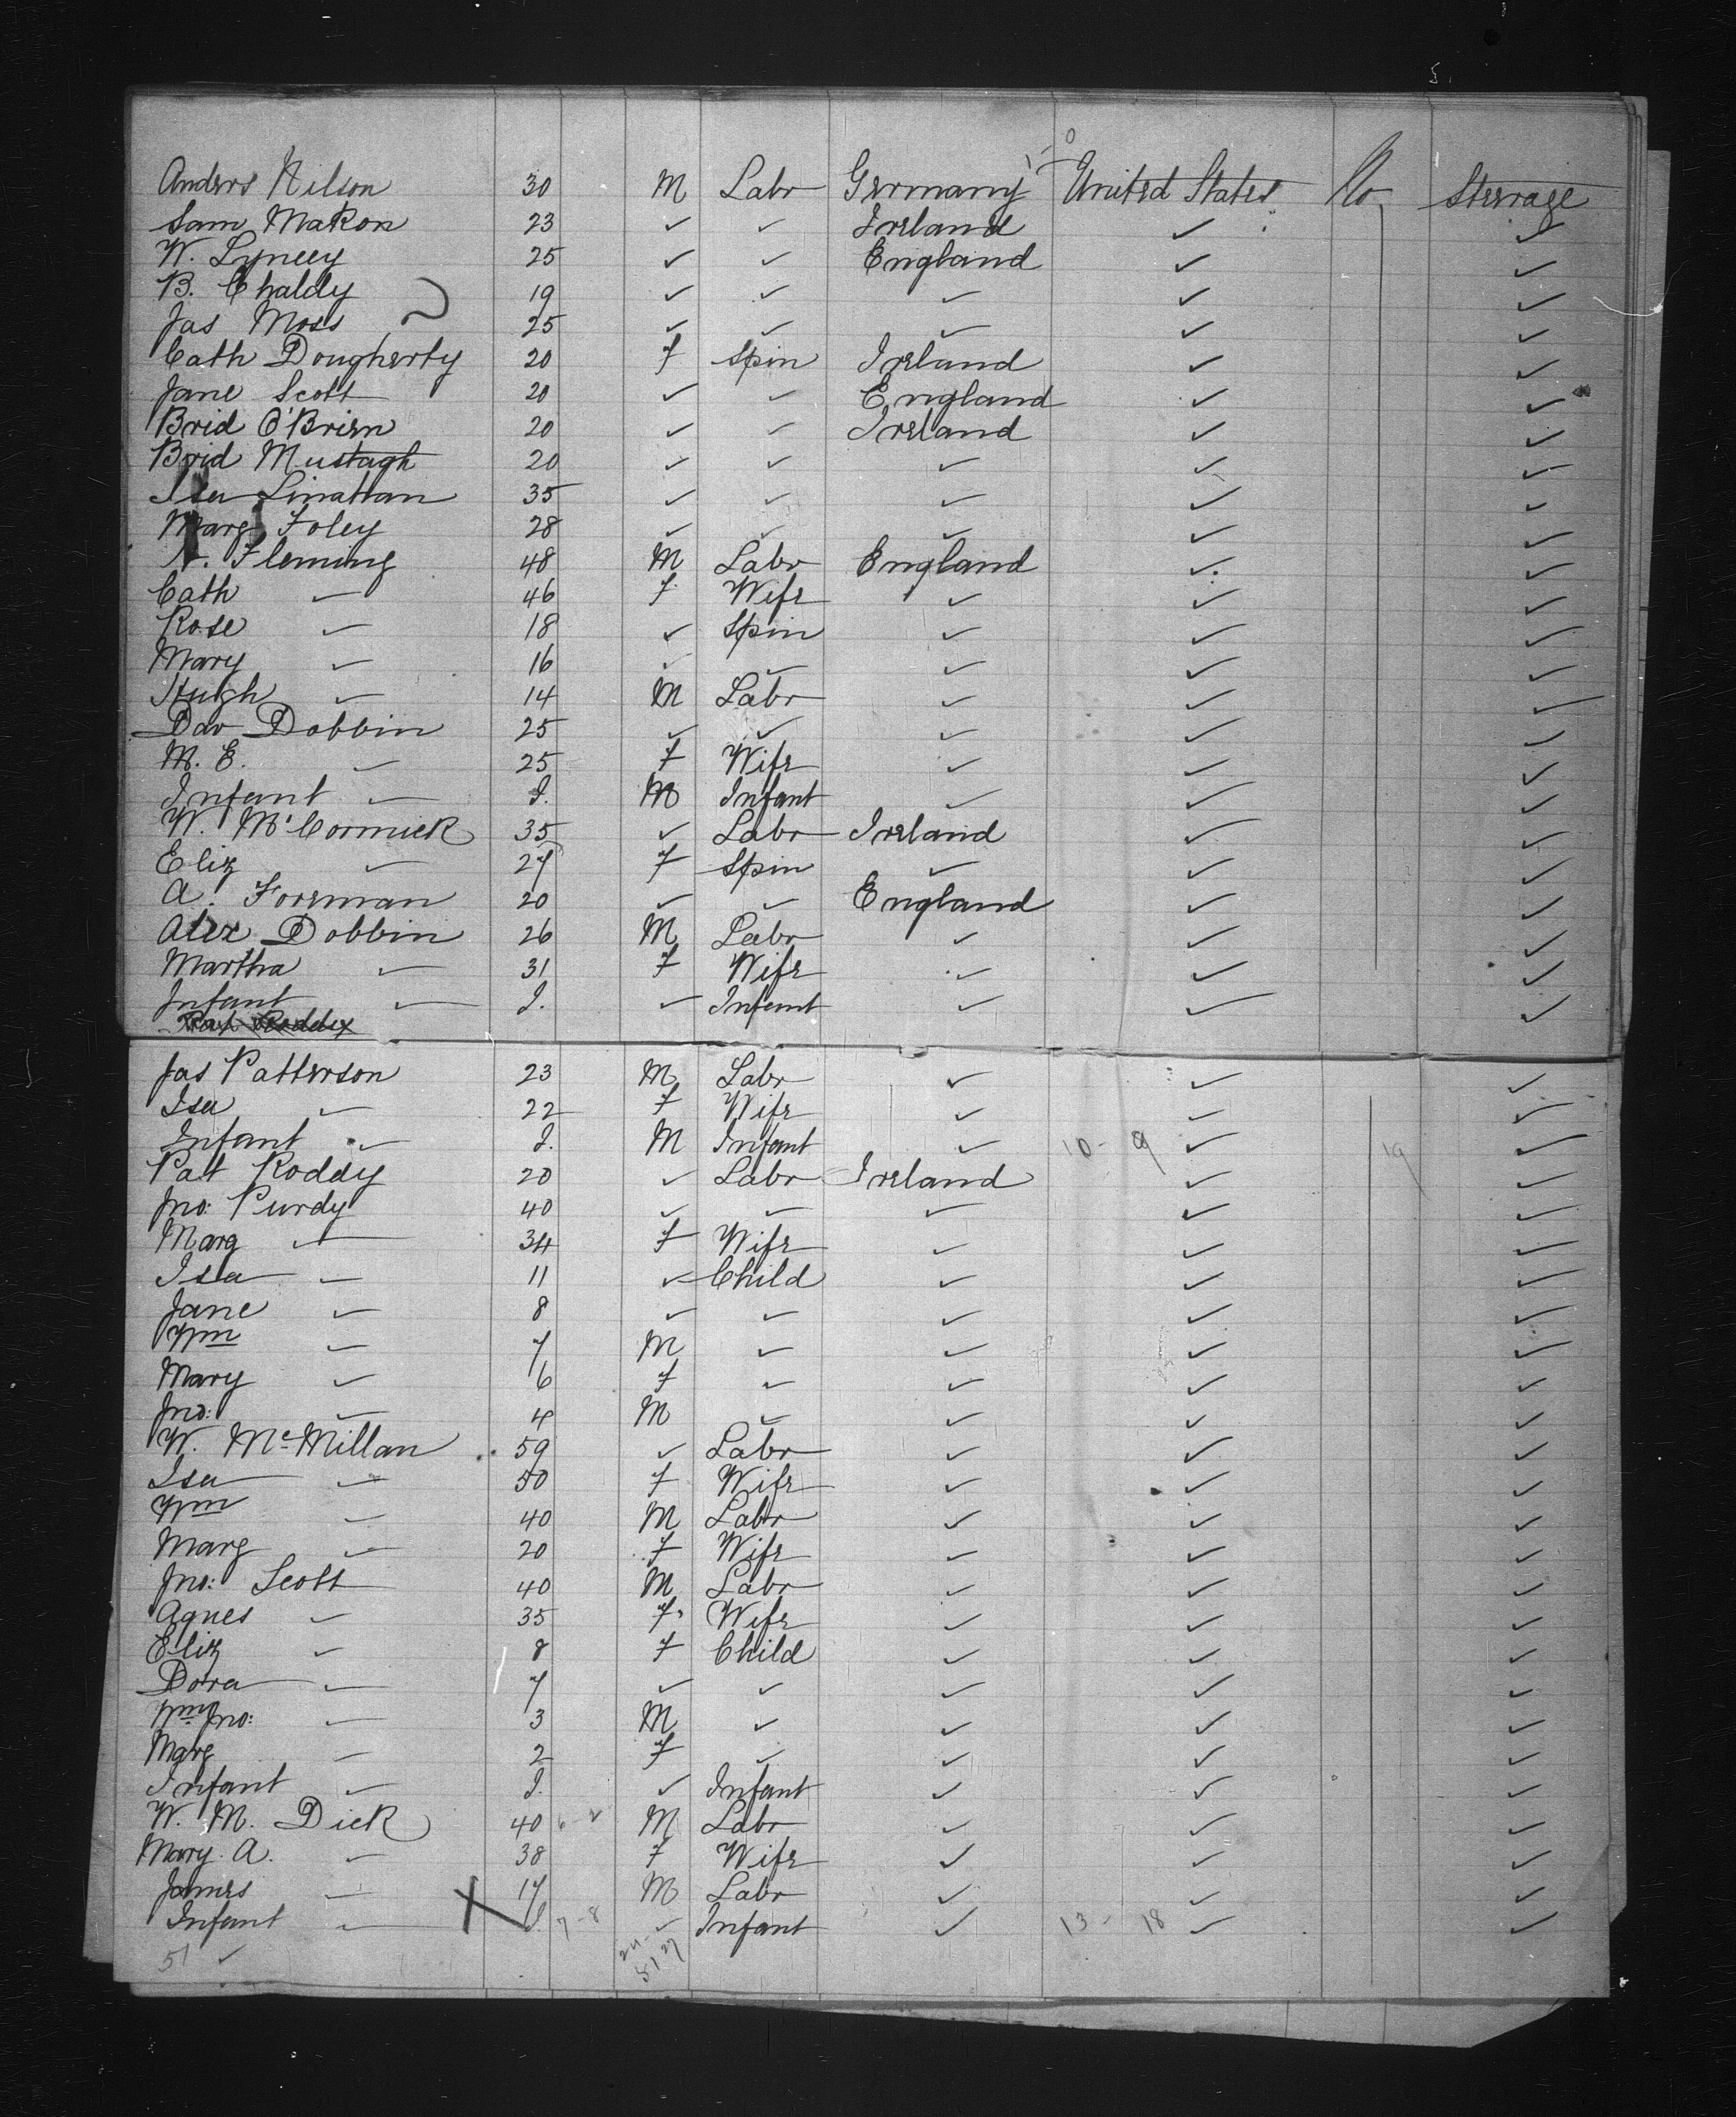 Anders Nilson 30 M Labr Germany United States No Steerage
Sam Makon 23 ✓ ✓ Ireland ✓ ✓
W. Lyncey 25 ✓ ✓ England ✓ ✓
B. Chaldy 19 ✓ ✓ ✓ ✓ ✓
Jas Moss 25 ✓ ✓ ✓ ✓ ✓
Cath Dougherty 20 F Spin Ireland ✓ ✓
Jane Scott 20 ✓ ✓ England ✓ ✓
Brid O'Brien 20 ✓ ✓ Ireland ✓ ✓
Brid Mustagh 20 ✓ ✓ ✓ ✓ ✓
Isa Linahan 35 ✓ ✓ ✓ ✓ ✓
Marg Foley 28 ✓ ✓ ✓ ✓ ✓
Fleming 48 M Labr England ✓ ✓
Cath ✓ 46 F Wife ✓ ✓ ✓
Rose ✓ 18 ✓ Spin ✓ ✓ ✓
Mary ✓ 16 ✓ ✓ ✓ ✓ ✓
Hugh ✓ 14 M Labr ✓ ✓ ✓
Dav Dobbin 25 ✓ ✓ ✓ ✓ ✓
M. E. ✓ 25 F Wife ✓ ✓ ✓
Infant ✓ I. M Infant ✓ ✓ ✓
W. McCormick 35 ✓ Labr Ireland ✓ ✓
Eliz ✓ 27 F Spin ✓ ✓ ✓
A. Foreman 20 ✓ ✓ England ✓ ✓
Alex Dobbin 26 M Labr ✓ ✓ ✓
Martha ✓ 31 F Wife ✓ ✓ ✓
Infant ✓ I. ✓ Infant ✓ ✓ ✓
Pat Roddy
Jas Patterson 23 M Labr ✓ ✓ ✓
Isa ✓ 22 F Wife ✓ ✓ ✓
Infant ✓ I. M Infant ✓ 10 - 9 ✓ 19 ✓
Pat Roddy 20 ✓ Labr Ireland ✓ ✓
Jno: Purdy 40 ✓ ✓ ✓ ✓ ✓
Marg ✓ 34 F Wife ✓ ✓ ✓
Isa ✓ 11 ✓ Child ✓ ✓ ✓
Jane ✓ 8 ✓ ✓ ✓ ✓ ✓
Wm ✓ 7 M ✓ ✓ ✓ ✓
Mary ✓ 6 F ✓ ✓ ✓ ✓
Jno: ✓ 4 M ✓ ✓ ✓ ✓
W. McMillan 59 ✓ Labr ✓ ✓ ✓
Isa ✓ 50 F Wife ✓ ✓ ✓
Wm ✓ 40 M Labr ✓ ✓ ✓
Marg ✓ 20 F Wife ✓ ✓ ✓
Jno: Scott 40 M Labr ✓ ✓ ✓
Agnes ✓ 35 F Wife ✓ ✓ ✓
Eliz ✓ 8 F Child ✓ ✓ ✓
Dora ✓ 7 ✓ ✓ ✓ ✓ ✓
Wm Jno: ✓ 3 M ✓ ✓ ✓ ✓
Marg ✓ 2 F ✓ ✓ ✓ ✓
Infant ✓ I. ✓ Infant ✓ ✓ ✓
W. M. Dick 40 6-2 M Labr ✓ ✓ ✓
Mary A. ✓ 38 F Wife ✓ ✓ ✓
James ✓ 17 M Labr ✓ ✓ ✓
Infant ✓ X I. 7-8 ✓ Infant ✓ 13 - 18 ✓ ✓
51 ✓ 24-27
51